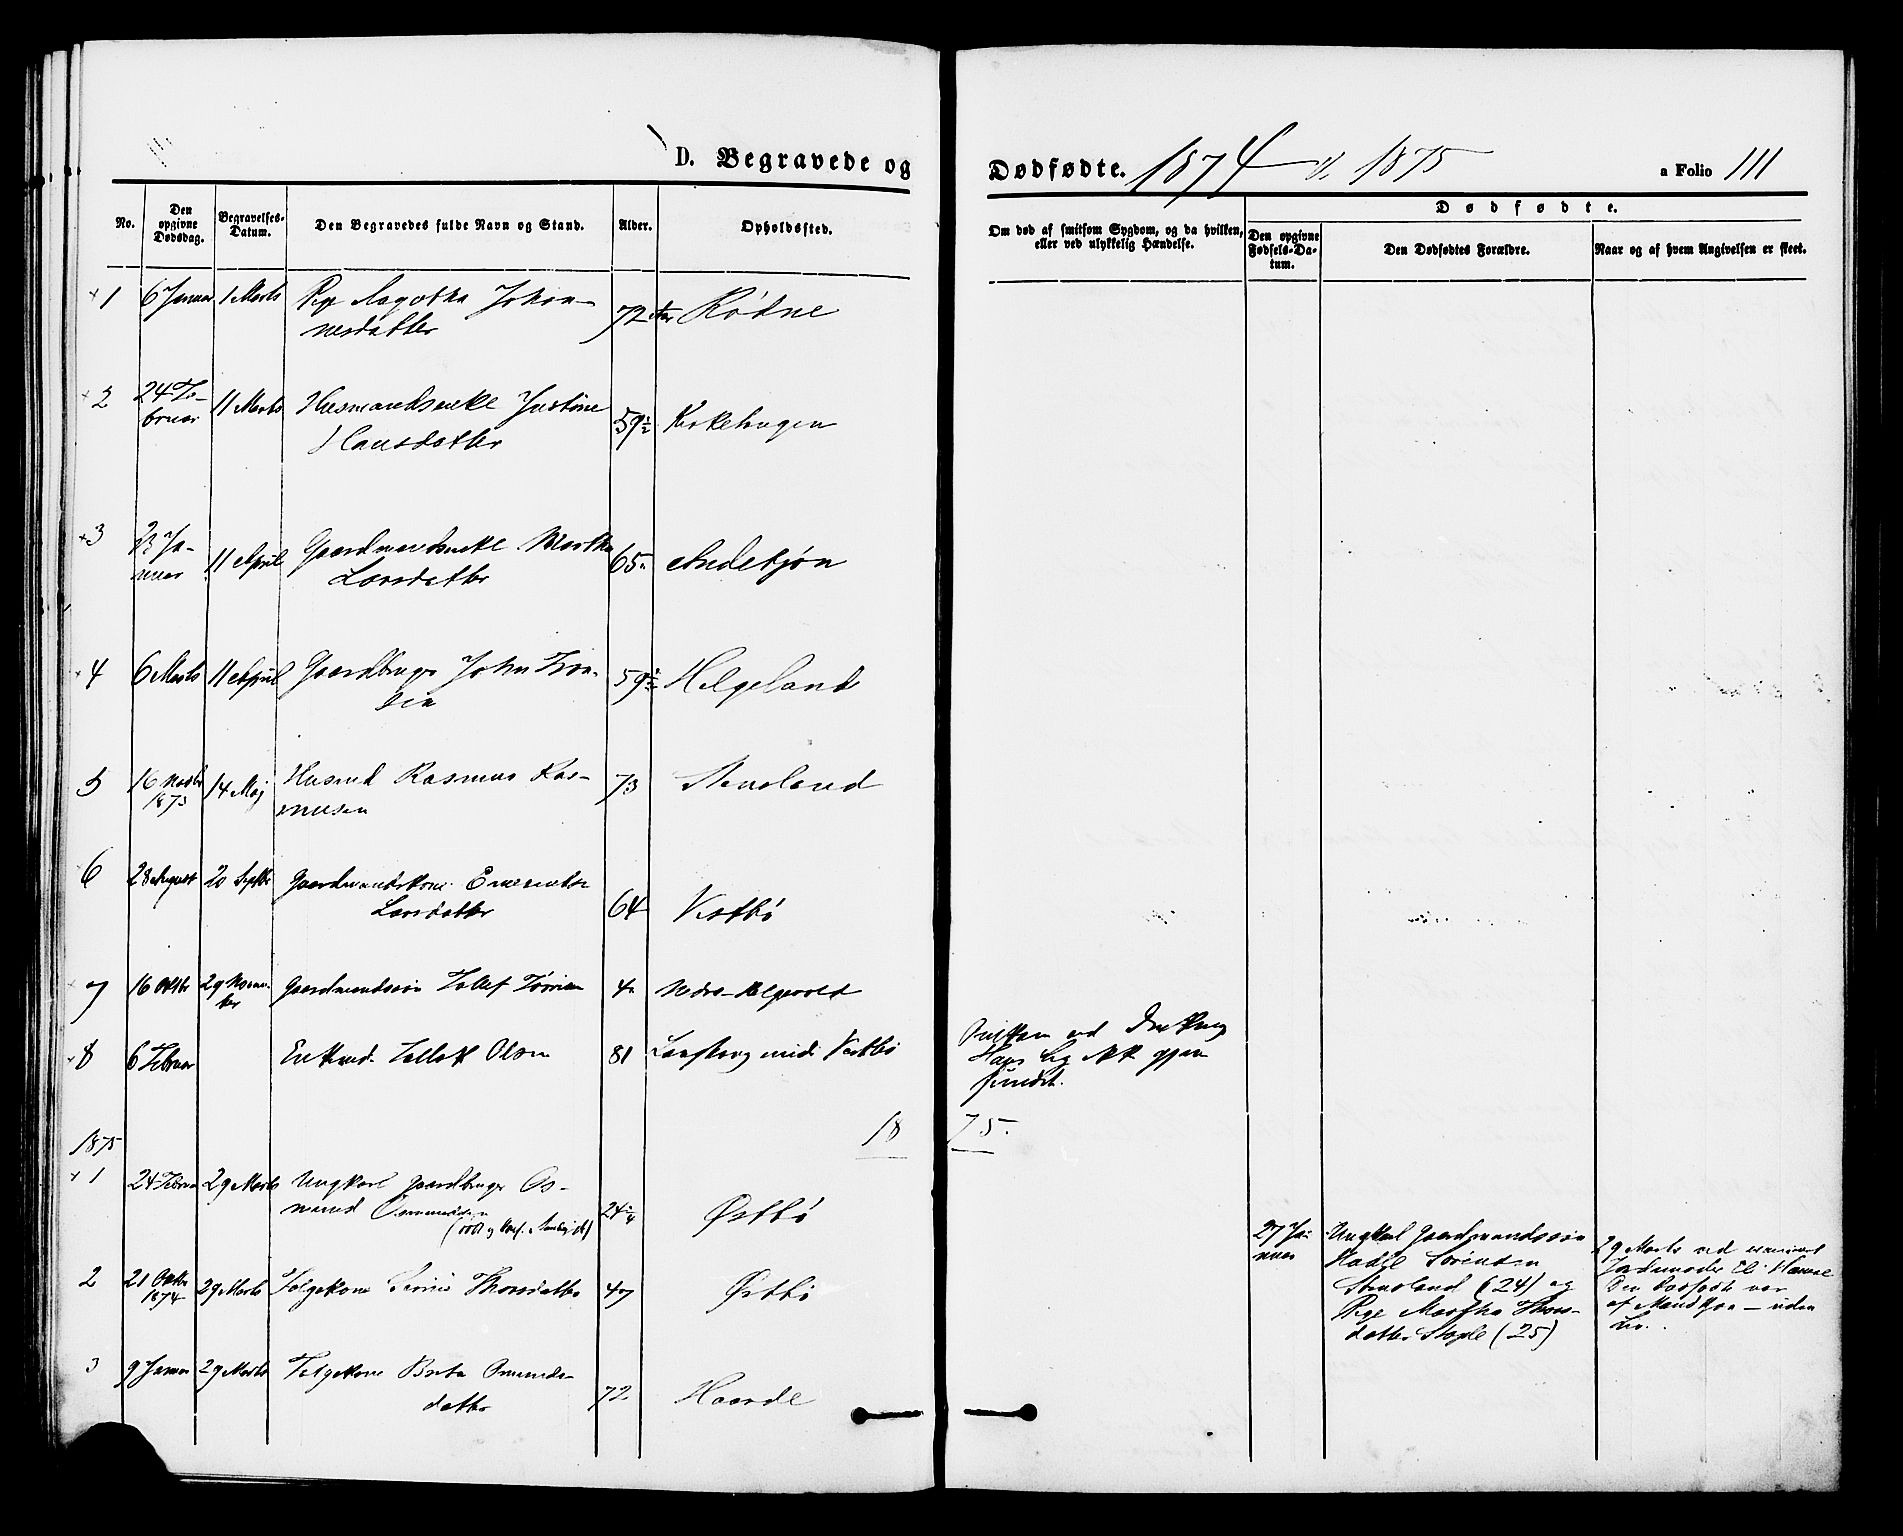 D. Begravede og
Dødfødte. 1874 1875
a Folio 111
No.
Den opgivne Dødsdag.
Begravelses-Datum.
Den Begravedes fulde Navn og Stand.
Alder.
Opholdssted.
Om død af smitsom Sygdom, og da hvilken,
eller ved ulykkelig Hændelse.
Dødfødte.
Den opgivne Fødsels-Datum.
Den Dødfødtes Forældre.
Naar og af hvem Angivelsen er skeet.
1 6 Januar 1 Marts Pige Aagotha Johan-
nesdatter 72 Aar Rødne
2 24 Fe-
bruar 11 Marts Husmandsenke Justine
Hansdatter 59½ Kirkehagen
3 23 Ja-
nuar 11 April Gaardmandsenke Martha
Larsdatter 65 
4 6 Marts 11 April Gaardbruger John
sen 59½ Helgeland
5 16 Novbr
1873 14 Maj Husmd Rasmus Ras-
musen 73 Stensland
6 28 August 20 Septbr Gaardmandskone
Larsdatter 64 Vestbø
7 16 Oktbr 29 Novem-
ber Gaardmandssøn 4
8 6 Februar Enkemd. Tollak Olsen 81 Vestbø
ved
Hans Lig ikke gjen
fundet.
18 75.
1875
1 24 Februar 29 Marts Ungkarl Gaardbruger Os-
mund Osmundsen 24¼ Østbø
27 Ja-
nuar
Ungkarl Gaardmandssøn
Sørensen
Stensland (24) og
Pige Martha Thors-
datter Stople (25)
29 Marts ved examineret
Jordemoder
Den Dødfødte var
af Mandkjøn – uden
Liv.
2 21 Oktbr
1874 29 Marts Følgekone Thorsdatter 47 Østbø
3 9 Januar 29 Marts Følgekone Berta Omunds-
datter 72 Haarde